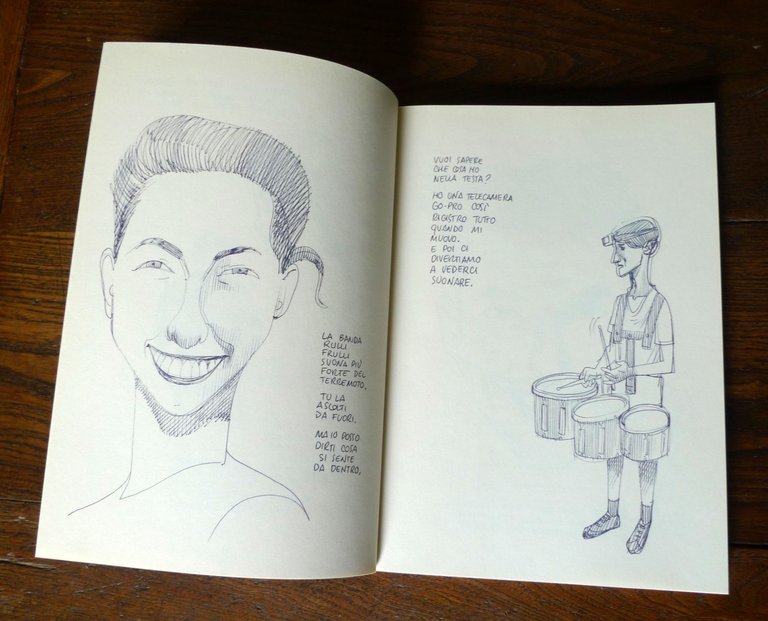 LA BANDA
RULLI
FRULLI
SUONA PIÙ
FORTE DEL
TERREMOTO.
TU LA
ASCOLTI
DA FUORI.
MA IO POSSO
DIRTI COSA
SI SENTE
DA DENTRO,
VUOI SAPERE
CHE COSA HO
NELLA TESTA?
HO UNA TELECAMERA
GO-PRO COSÌ
REGISTRO TUTTO
QUANDO MI
MUOVO.
E POI CI
DIVERTIAMO
A VEDERCI
SUONARE.